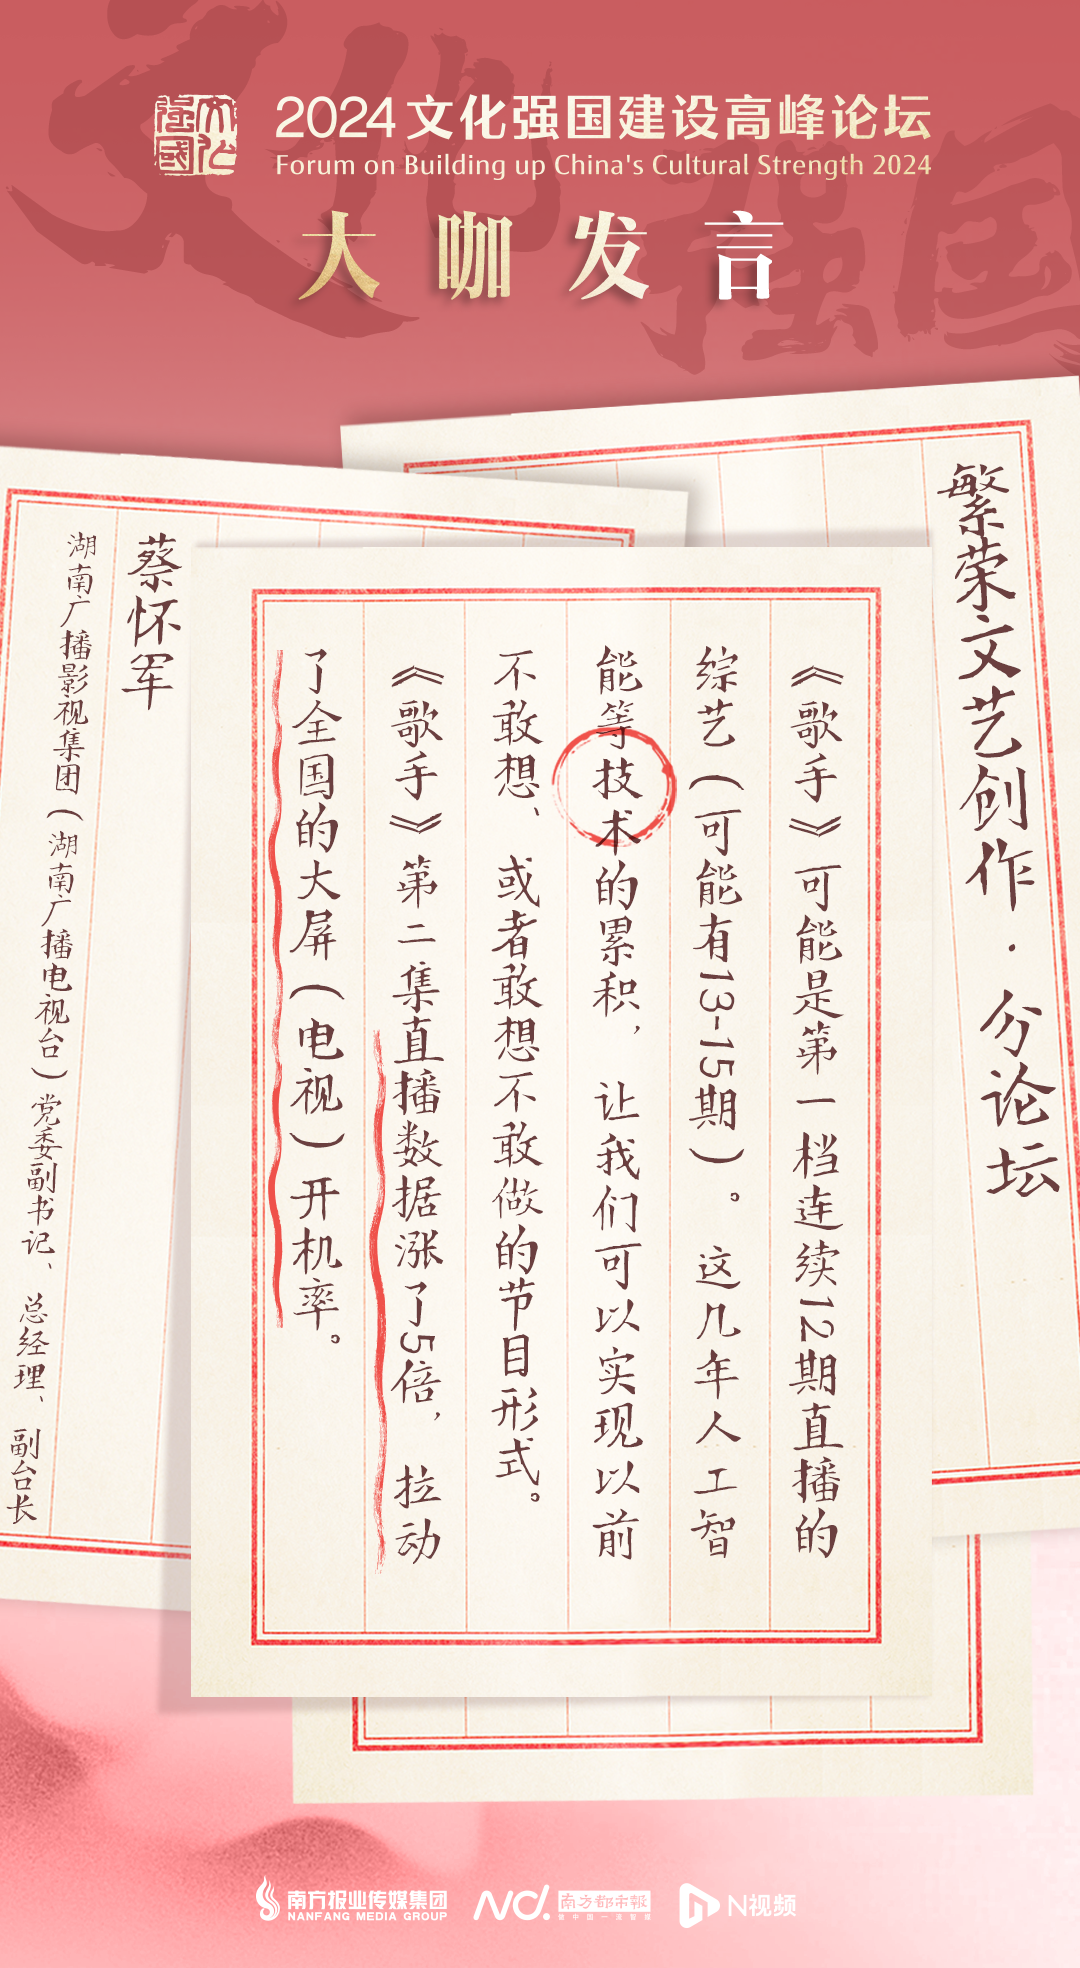 文化强国
2024文化强国建设高峰论坛
Forum on Building up China's Cultural Strength 2024
大咖发言
文化强国
繁荣文艺创作·分论坛
《歌手》可能是第一档连续12期直播的
综艺（可能有13-15期）。这几年人工智
能等技术的累积，让我们可以实现以前
不敢想、或者敢想不敢做的节目形式。
《歌手》第二集直播数据涨了5倍，拉动
了全国的大屏（电视）开机率。
蔡怀军
湖南广播影视集团（湖南广播电视台）党委副书记、总经理、副台长
南方报业传媒集团
NANFANG MEDIA GROUP
nd!
南方都市報
N视频